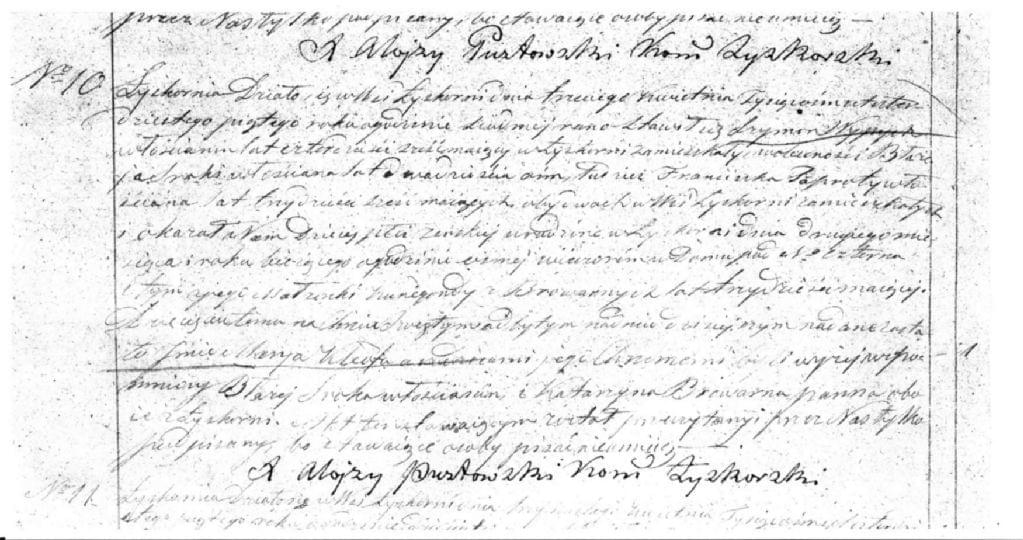 przez Nas tylko podpisany, bo stawające osoby pisać nie umieją —
X Alojzy Pustowski Kom Łyskorski
No 10
Łyskornia Działo się w Wsi Łyskorni dnia trzeciego Kwietnia Tysiąc
dziestego piątego roku o godzinie siódmej rano Stawił się Szymon
włościanin lat czterdzieści sześć mający w Łyskorni zamieszkały w obecności Błaże
ja Sroki włościana lat dwadzieścia ośm, tudzież Franciszka Paproty wło
ściana lat trzydzieści sześć mających, obydwóch w Wsi Łyskorni zamieszkałych
i okazał Nam Dziecię płci żeńskiej urodzone w Łyskorni dnia drugiego mie
siąca i roku bieżącego o godzinie ósmej wieczorem w Domu pod No czterna
stym z jego Małżonki Kunegondy z lat trzydzieści mającej.
Dziecięciu temu na Chrzcie Świętym odbytym na dniu dzisiejszym nadane zosta
ło Imię Marja a rodzicami jego Chrzestnemi byli wyżej wspo
mniony Błażej Sroka włościanin, i Katarzyna Browarna panna obo
je z Łyskorni. Akt ten stawającym został przeczytany i przez Nas tylko
podpisany, bo stawające osoby pisać nie umieją —
1
X Alojzy Pustowski Kom Łyskorski
No 11
Łyskornia Działo się w Wsi Łyskorni dnia Kwietnia Tysiąc
piątego roku o godzinie